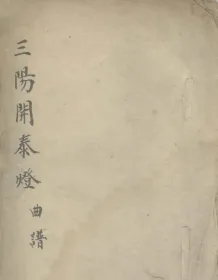 三陽開泰燈曲譜